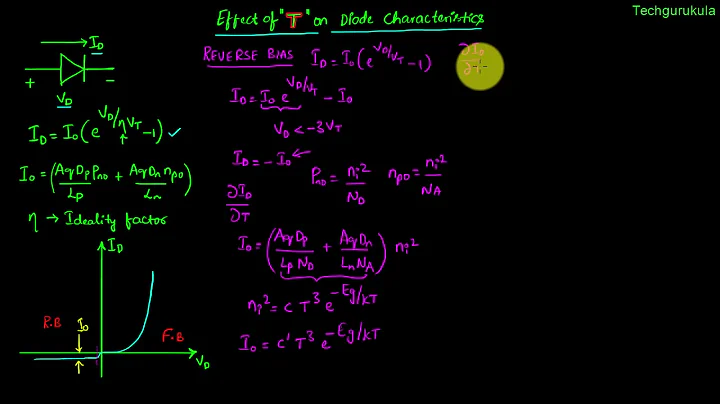 Techgurukula
Effect of "T" on Diode Characteristics
I_D
+ −
V_D
I_D = I_0 (e^{V_D/ηV_T} - 1) ✓
I_0 = (A q D_p P_{n0} / L_p + A q D_n n_{p0} / L_n)
η → Ideality factor
I_D
R.B I_0 F.B
V_D
REVERSE BIAS I_D = I_0 (e^{V_D/V_T} - 1) ∂I_0 / ∂T
I_D = I_0 e^{V_D/V_T} - I_0
V_D < -3V_T
I_D = - I_0 ←
P_{n0} = n_i^2 / N_D n_{p0} = n_i^2 / N_A
∂I_D / ∂T
I_0 = (A q D_p / L_p N_D + A q D_n / L_n N_A) n_i^2
n_i^2 = C T^3 e^{-Eg/kT}
I_0 = C' T^3 e^{-Eg/kT}